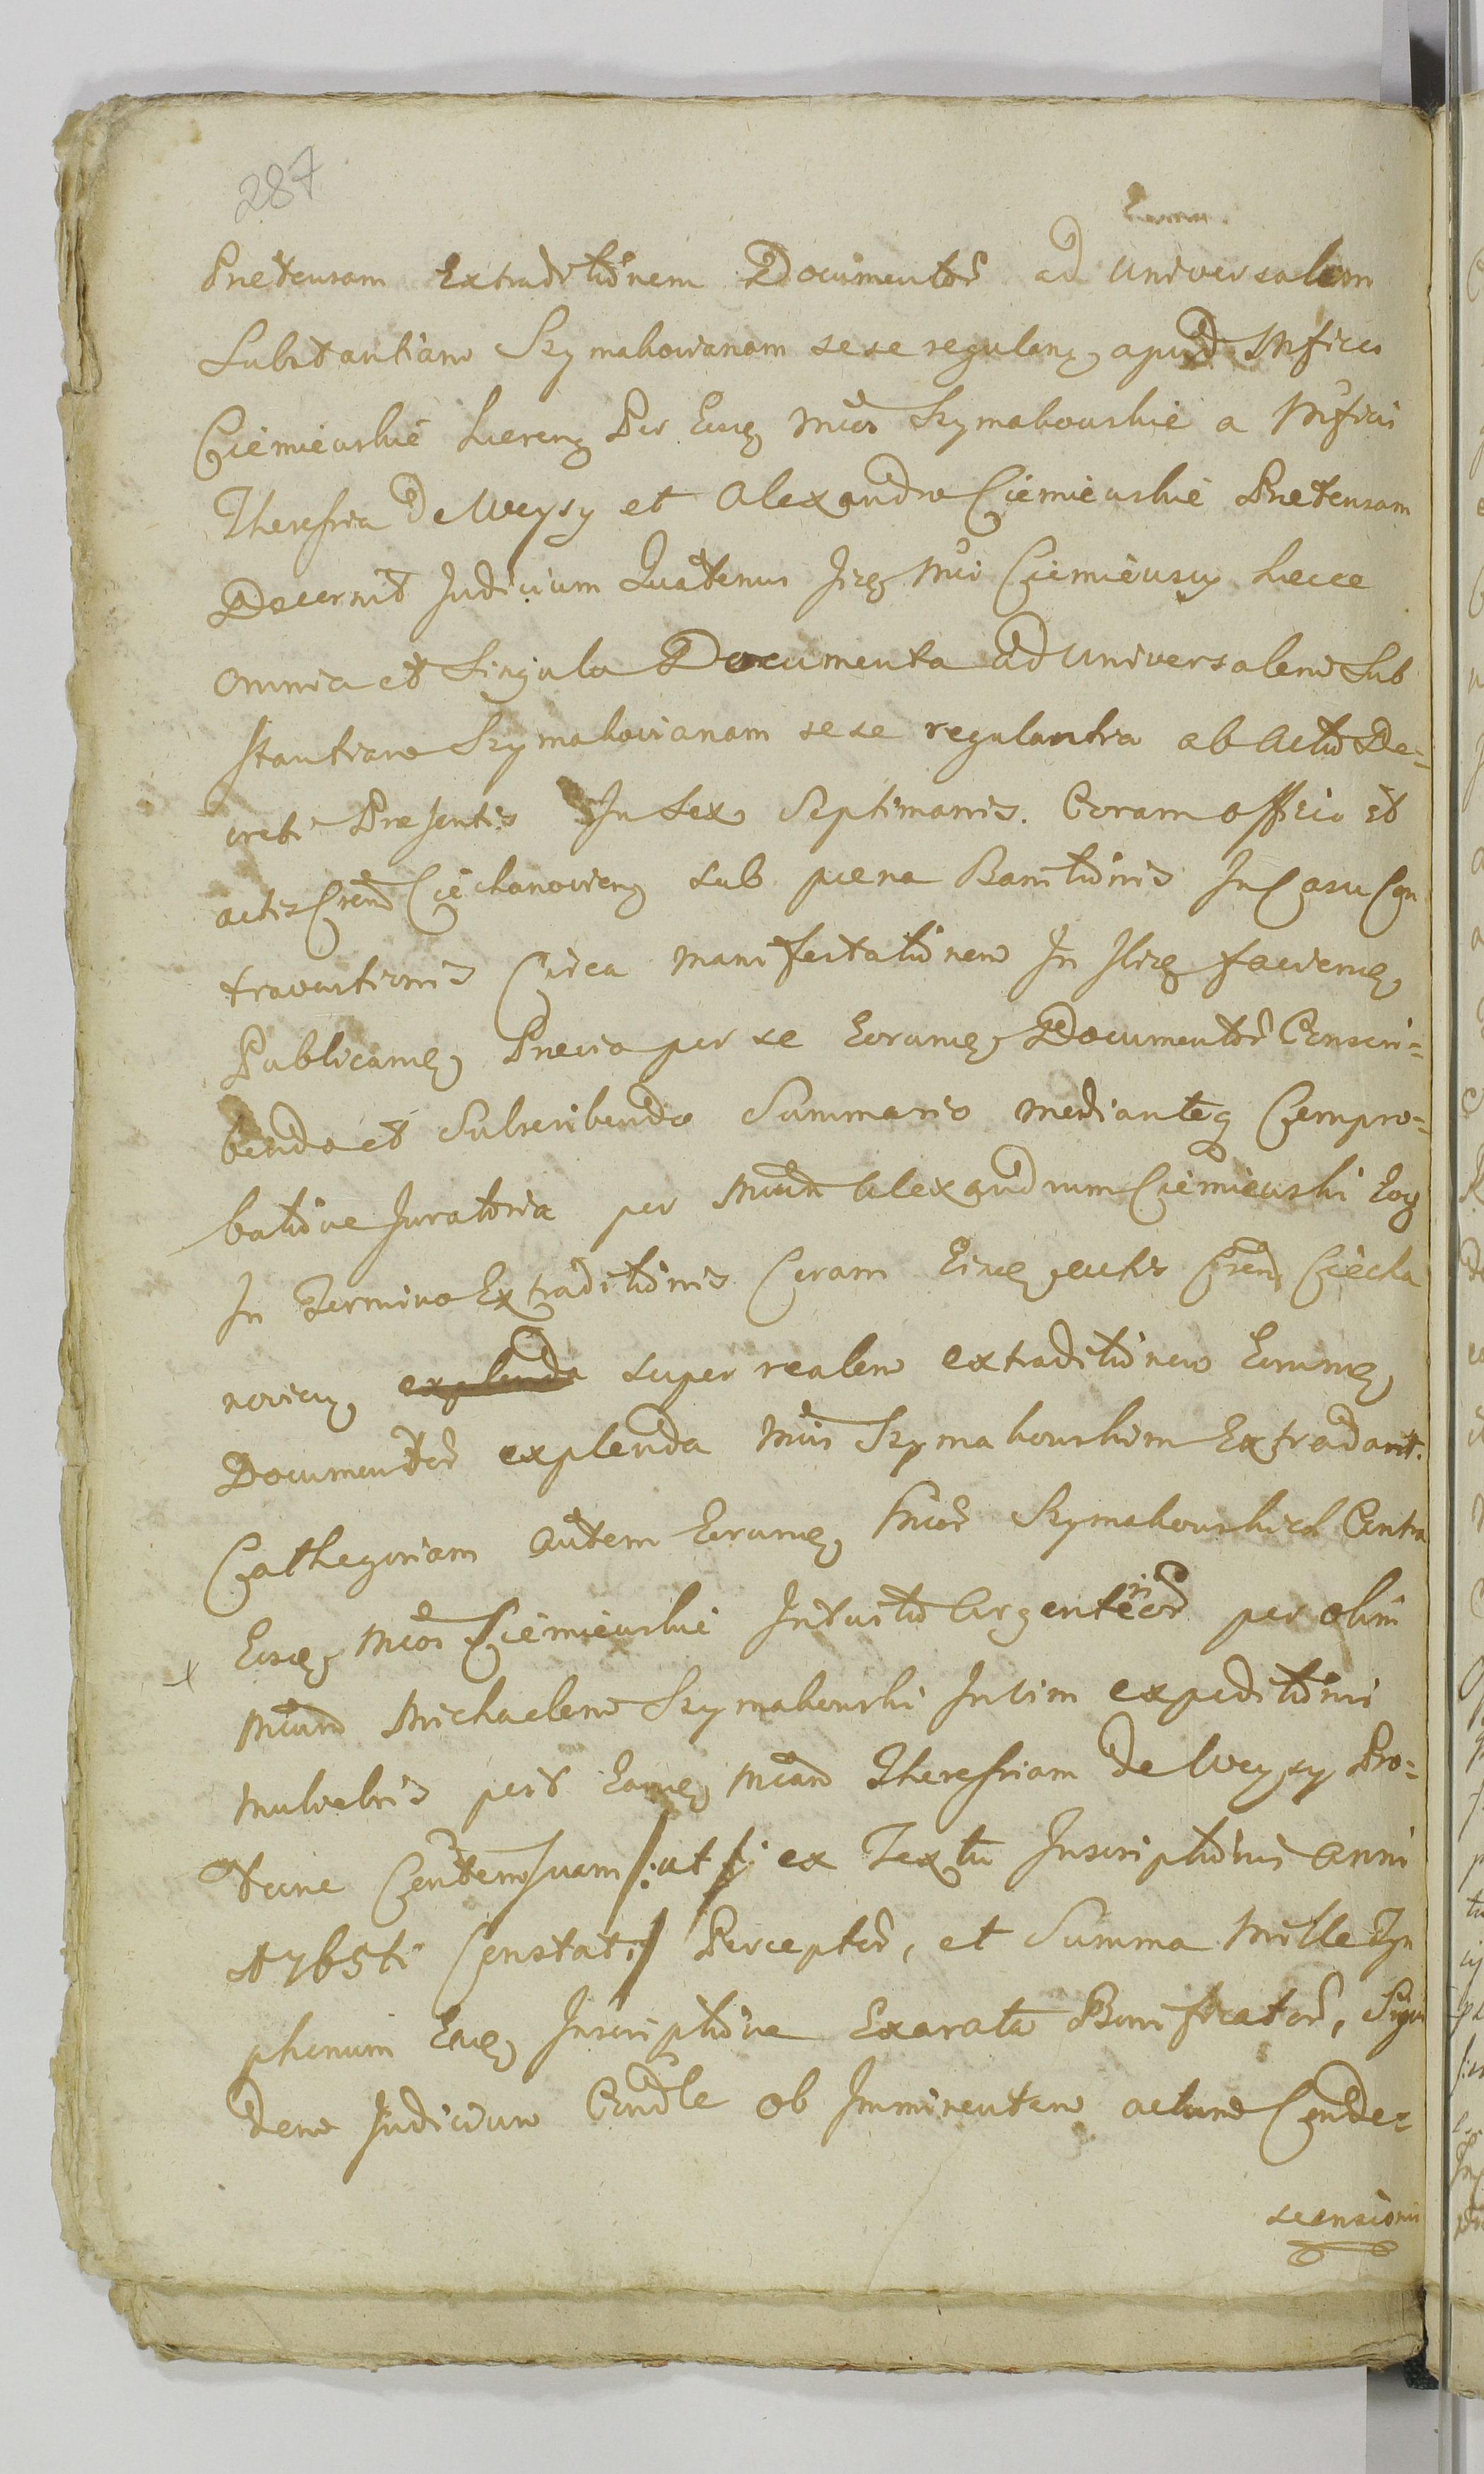 287
Pretensam Extraditionem Documentor ad Universalem
Substantiam Szymakovianam sese regulan apud Mficos
Ciemiewskie haeren Per Eosq Mcos Szymakowskie a Mficis
Theressia de Weysy et Alexandro Ciemiewskie Pretensam
Decernit Judicium Quatenus Jizq Mci Ciemiewscy haecce
omnia et Singula Documenta ad Universalem Sub
stantiam Szymakovianam sese regulantia ab Actu De=
creti Presentis In Sex Septimanis. Coram Officio et
actis Crend Ciechanovien sub paena Banitionis In Casu Con
traventionis Circa Manifestationem In facienq
Publicamq Previo per se Eorumq Documentor Conscri=
bendo et Subscribendo Summario medianteq Compro=
batione Juratoria per Mcum Alexandrum Ciemiewski Eoq
In Termino Extraditionis Coram Eisq actis Crend Ciecha
novien explenda super realem extraditionem Eorumq
Documentor explenda Mcis Szymakowskim Extradant.
Cathegoriam autem Eorumq Mcor Szymakowskich Contra
Eosq Mcos Ciemiewskie Intuitu Argenteor per olim
Mcum Michaelem Szymakowski In vim expeditionis
Muliebris per Eamq Mcam Theressiam de Weysy Pro=
tunc Contem suam /: ut ex Textu Inscriptionis Anni
1765ti Constat :/ Perceptor, et Summa Mille Tyn
phonum Eaq Inscriptione Exarata Bonificator, Siqui
dem Judicium Condle ob Imminentem actum Conde=
scensionis